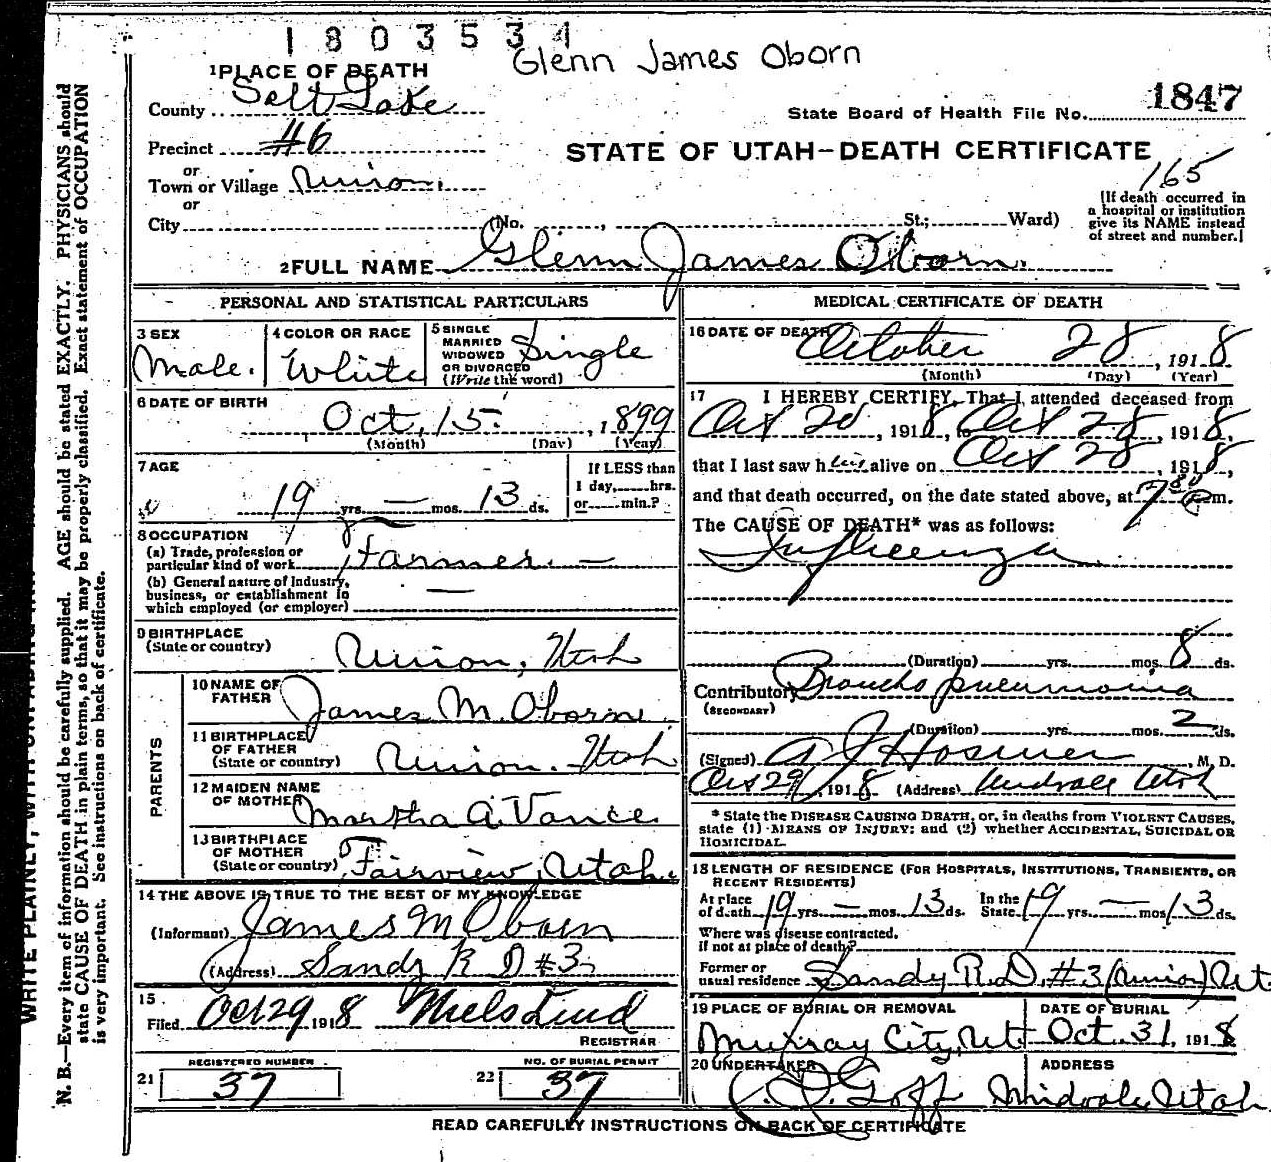 1803534
Glenn James Oborn
1 PLACE OF DEATH
County Salt Lake
State Board of Health File No. 1847
Precinct #6
STATE OF UTAH—DEATH CERTIFICATE
165
or
Town or Village Union.
or
City (No. , St.; Ward)
(If death occurred in
a hospital or institution
give its NAME instead
of street and number.)
2 FULL NAME Glenn James Oborn.
PERSONAL AND STATISTICAL PARTICULARS
3 SEX
Male.
4 COLOR OR RACE
White
5 SINGLE
MARRIED
WIDOWED
OR DIVORCED
(Write the word)
Single
6 DATE OF BIRTH
Oct. 15. , 1899
(Month) (Day) (Year)
7 AGE
19 yrs. — mos. 13 ds.
If LESS than
1 day, hrs.
or min.?
8 OCCUPATION
(a) Trade, profession or
particular kind of work Farmer. —
(b) General nature of Industry,
business, or establishment in
which employed (or employer) —
9 BIRTHPLACE
(State or country)
Union, Utah
PARENTS
10 NAME OF
FATHER
James M. Oborn.
11 BIRTHPLACE
OF FATHER
(State or country)
Union. Utah
12 MAIDEN NAME
OF MOTHER
Martha A. Vance.
13 BIRTHPLACE
OF MOTHER
(State or country)
Fairview, Utah.
14 THE ABOVE IS TRUE TO THE BEST OF MY KNOWLEDGE
(Informant) James M Oborn
(Address) Sandy R D #3
15
Filed Oct 29 1918 Niels Lind
REGISTRAR
REGISTERED NUMBER
21 37
NO. OF BURIAL PERMIT
22 37
MEDICAL CERTIFICATE OF DEATH
16 DATE OF DEATH October 28, 1918
(Month) (Day) (Year)
17 I HEREBY CERTIFY, That I attended deceased from
Oct 20, 1918, to Oct 28, 1918,
that I last saw him alive on Oct 28, 1918,
and that death occurred, on the date stated above, at 7 30 P m.
The CAUSE OF DEATH* was as follows:
Influenza
(Duration) yrs. mos. 8 ds.
Contributory Broncho pneumonia
(SECONDARY)
(Duration) yrs. mos. 2 ds.
(Signed) A J Hosmer, M. D.
Oct 29, 1918 (Address) Midvale Utah
* State the DISEASE CAUSING DEATH, or, in deaths from VIOLENT CAUSES,
state (1) MEANS OF INJURY; and (2) whether ACCIDENTAL, SUICIDAL OR
HOMICIDAL.
18 LENGTH OF RESIDENCE (FOR HOSPITALS, INSTITUTIONS, TRANSIENTS, OR
RECENT RESIDENTS)
At place
of death 19 yrs. — mos. 13 ds. In the
State 19 yrs. — mos. 13 ds.
Where was disease contracted.
If not at place of death?
Former or
usual residence Sandy R.D. #3 (Union) Ut
19 PLACE OF BURIAL OR REMOVAL
Murray City, Ut.
DATE OF BURIAL
Oct. 31, 1918
20 UNDERTAKER
Goff
ADDRESS
Midvale, Utah
READ CAREFULLY INSTRUCTIONS ON BACK OF CERTIFICATE
WRITE PLAINLY, WITH UNFADING INK
N. B.—Every item of information should be carefully supplied. AGE should be stated EXACTLY. PHYSICIANS should
state CAUSE OF DEATH in plain terms, so that it may be properly classified. Exact statement of OCCUPATION
is very important. See instructions on back of certificate.